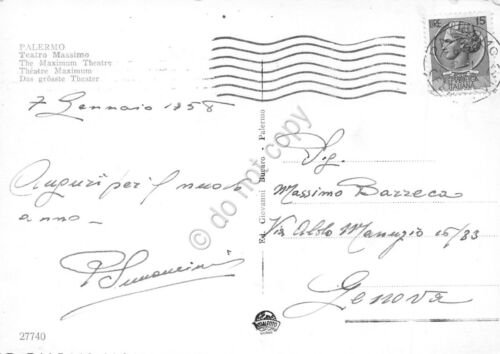 PALERMO
Teatro Massimo
The Maximum Theatre
Théatre Maximum
Das grösste Theater
7 Gennaio 1958
Auguri per il nuovo
anno -
Ed. Giovanni Bugaro - Palermo
LIRE 15
REPUBBLICA
ITALIANA
Sig.
Massimo Barreca
Via Aldo Manuzio 15/33
Genova
27740
do not copy